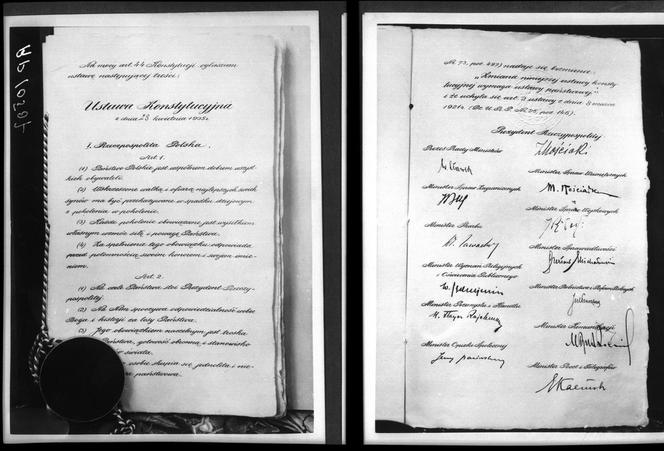 Na mocy art. 44 Konstytucji ogłaszam
ustawę następującej treści:
Ustawa Konstytucyjna
z dnia 23 kwietnia 1935 r.
I. Rzeczpospolita Polska.
Art. 1.
(1) Państwo Polskie jest wspólnem dobrem wszyst-
kich obywateli.
(2) Wskrzeszone walką i ofiarą najlepszych swoich
synów ma być przekazywane w spadku dziejowym
z pokolenia w pokolenie.
(3) Każde pokolenie obowiązane jest wysiłkiem
własnym wzmóc siłę i powagę Państwa.
(4) Za spełnienie tego obowiązku odpowiada
przed potomnością swoim honorem i swojem imie-
niem.
Art. 2.
(1) Na czele Państwa stoi Prezydent Rzeczy-
pospolitej.
(2) Na Nim spoczywa odpowiedzialność wobec
Boga i historji za losy Państwa.
(3) Jego obowiązkiem naczelnym jest troska
Państwa, gotowość obronną i stanowisko
świata.
osobie skupia się jednolita i nie-
państwowa.
Nr. 73, poz. 497) nadaje się brzmienie:
„Zmiana niniejszej ustawy konsty-
tucyjnej wymaga ustawy państwowej”
i że uchyla się art. 2 ustawy z dnia 8 marca
Prezydent Rzeczypospolitej
I Mościcki
Prezes Rady Ministrów
Minister Spraw Wewnętrznych
Minister Spraw Zagranicznych
Minister Spraw Wojskowych
Minister Skarbu
Minister Sprawiedliwości
Minister Wyznań Religijnych
i Oświecenia Publicznego
Minister Rolnictwa i Reform Rolnych
Minister Przemysłu i Handlu
Minister Komunikacji
Minister Opieki Społecznej
Minister Poczt i Telegrafów